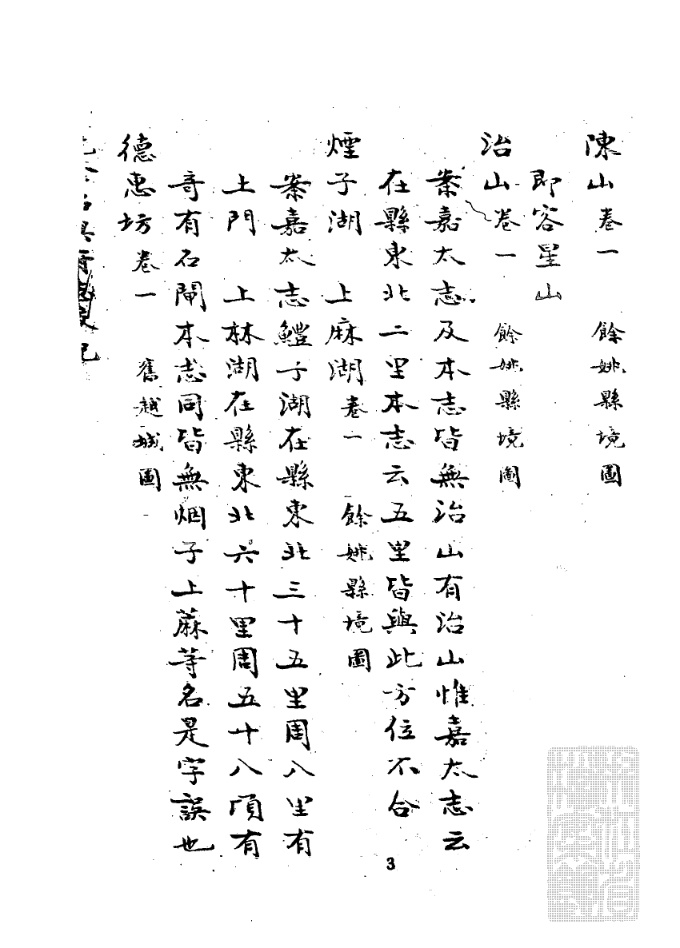 陳山卷一　餘姚縣境圖
即容星山
治山卷一　餘姚縣境圖
案嘉太志及本志皆無治山有治山惟嘉太志云
在縣東北二里本志云五里皆與此方位不合
煙子湖　上麻湖卷一　餘姚縣境圖
案嘉太志鱷子湖在縣東北三十五里周八里有
土門　上林湖在縣東北六十里周五十八頃有
奇有石閘本志同皆無烟子上蔴等名是字誤也
德惠坊卷一　舊越城圖
3